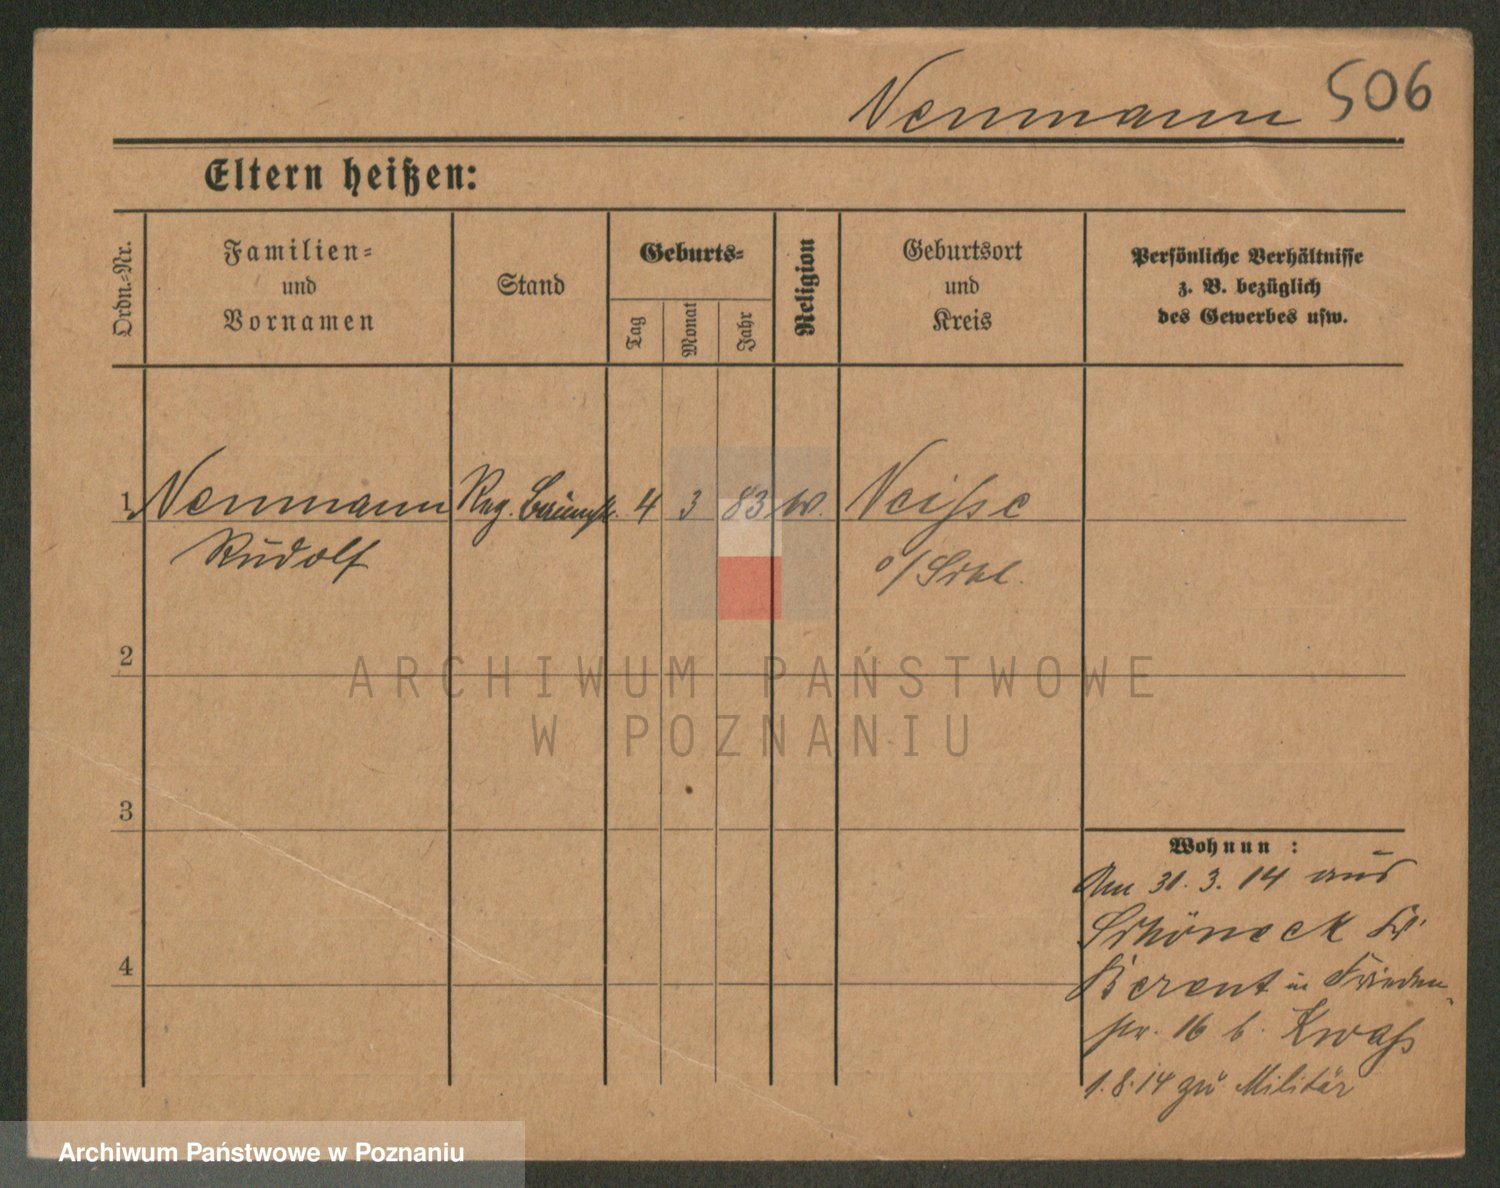 Neumann 506
Eltern heißen:
Ordn.-Nr.
Familien-
und
Vornamen
Stand
Geburts-
Tag
Monat
Jahr
Religion
Geburtsort
und
Kreis
Persönliche Verhältnisse
z. B. bezüglich
des Gewerbes usw.
1 Neumann Reg. 4 3 83 Neisse
Rudolf o/Schl.
2
3
4
Wohnun :
Am 31. 3. 14 aus
Schöneck Kr.
Berent in Frieden-
str. 16 b. Kwaß
1.8.14 zu Militär
ARCHIWUM PAŃSTWOWE
W POZNANIU
Archiwum Państwowe w Poznaniu